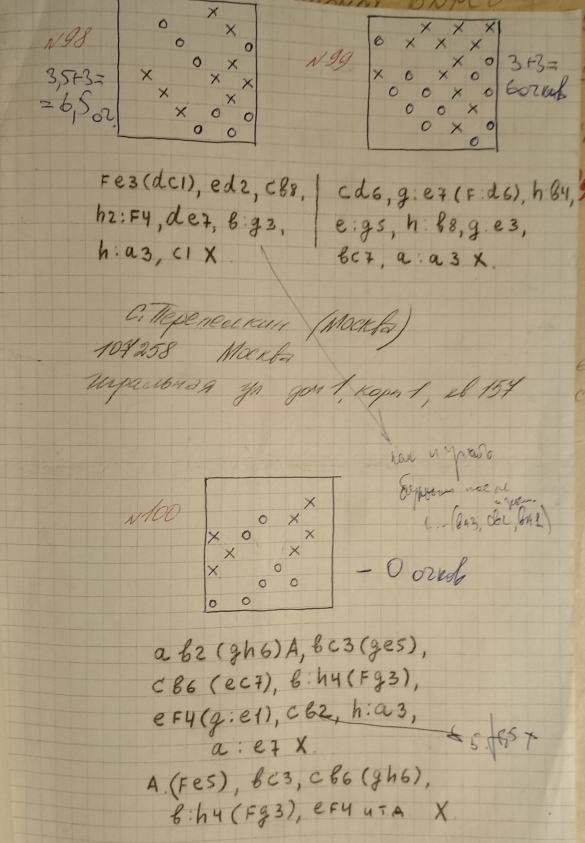 N98
3,5+3=
=6,5 оч.
N99
3+3=
6 очков
Fe3(dc1), ed2, cв8,
h2:F4, de7, в:g3,
h:a3, c1 X
cd6, g:e7(F:d6), hв4,
e:g5, h:в8, g:e3,
вc7, a:a3 X.
С. Перепёлкин (Москва)
107258 Москва
Игральная ул. дом 1, корп 1, кв 157
после
N100
- 0 очков
aв2(gh6)A, вc3(ge5),
cв6(ec7), в:h4(Fg3),
eF4(g:e1), cв2, h:a3,
a:e7 X
A.(Fe5), вc3, cв6(gh6),
в:h4(Fg3), eF4 и тд X